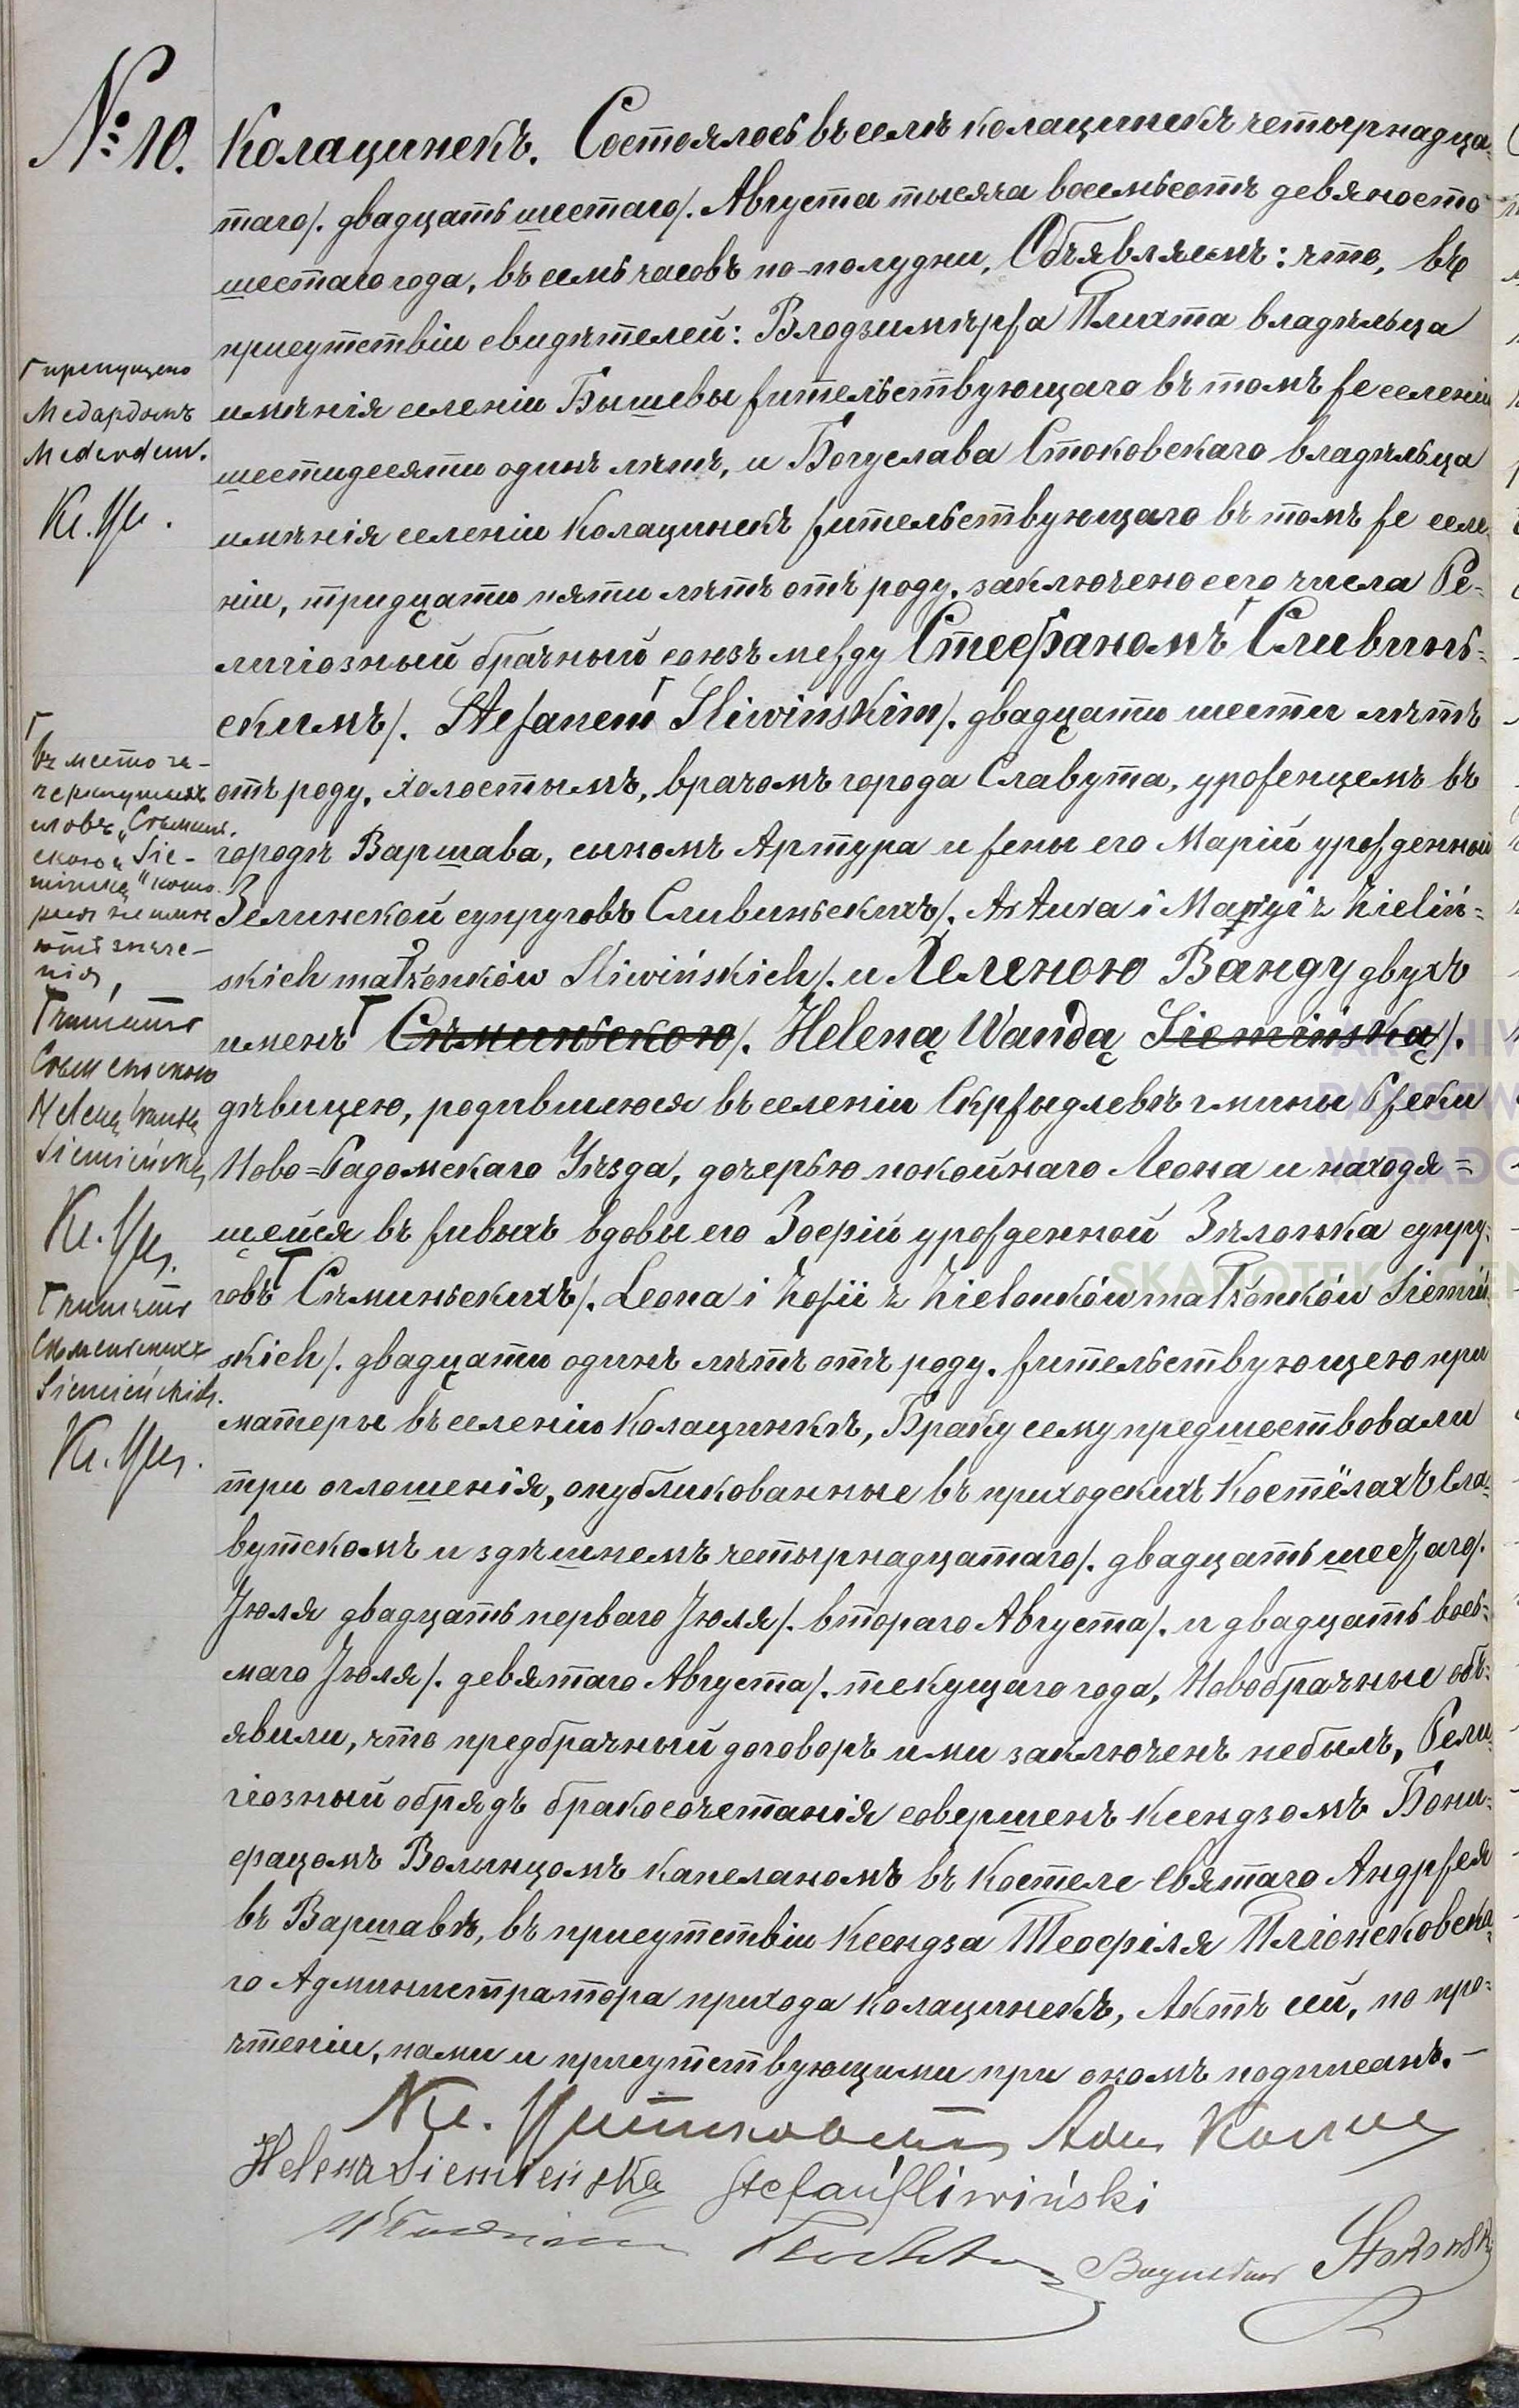 № 10.
Колацинекъ. Состоялось въ селѣ Колацинскѣ четырнадца-
таго/. двадцать шестаго/. Августа тысяча восемьсотъ девяносто
шестаго года, въ семь часовъ по-полудни. Объявляемъ: что, въ
присутствіи свидѣтелей: Влодзимѣржа Плихта владѣльца
имѣнія селеніи Бышевы жительствующаго въ томъ же селеніи
шестидесяти одинъ лѣтъ, и Богуслава Стоковскаго владѣльца
имѣнія селеніи Колацинекъ жительствующаго въ томъ же селе-
ніи, тридцати пяти лѣтъ отъ роду, заключено сего числа Ре-
лигіозный брачный союзъ между Стефаномъ Сливинь-
скимъ/. Stefanem Sliwińskim/. двадцати шести лѣтъ
отъ роду, холостымъ, врачомъ города Славута, уроженцемъ въ
городѣ Варшава, сыномъ Артура и жены его Марій урожденной
Зелинской супруговъ Сливиньскихъ/. Artura i Maryi z Zieliń-
skich małżonków Sliwińskich/. и Геленою Ванду двухъ
именъ Съминьскою/. Heleną Wandą Siemińską/.
дѣвицею, родившеюся въ селеніи Скржыдлевѣ гмины Ржеки
Ново-Радомскаго Уѣзда, дочерью покойнаго Леона и находя-
щейся въ живыхъ вдовы его Зофій урожденной Зѣлонка супру-
говъ Сѣминьскихъ/. Leona i Zofii z Zielonków małżonków Siemiń-
skich/. двадцати одинъ лѣтъ отъ роду, жительствующею при
матери въ селенію Колацинкѣ, Браку сему предшествовали
три оглошенія, опубликованные въ приходскихъ Костёлахъ Сла-
вутскомъ и здѣшнемъ четырнадцатаго/. двадцать шестаго/.
Іюля двадцать перваго Іюля/. втораго Августа/. и двадцать вось-
маго Іюля/. девятаго Августа/. текущаго года, Новобрачные объ-
явили, что предбрачный договоръ ими заключенъ небылъ, Рели-
гіозный обрядъ бракосочетанія совершенъ Ксендзомъ Бони-
фацомъ Волынцомъ Капеланомъ въ Костеле Святаго Андржея
въ Варшавѣ, въ присутствіи Ксендза Теофіля Плгонсковска-
го Администратора прихода Колацинекъ, Актъ сій, по про-
чтеніи, нами и присутствующими при ономъ подписанъ. —
пропущено
Медардомъ
Medardem.
Кс. Ци.
вместо за-
черкнутыхъ
словъ „Съминь.
скою" „Sie-
mińską" кото-
рыя не имѣ-
ютъ значе-
нія,
читать
Съменьскою
Heleną Wandą
Siemieńską
Кс. Ци.
читать
Сѣменьскихъ
Siemieńskich.
Кс. Ци.
Helena Siemieńska Stefan Sliwiński
Bogusław Stokowski